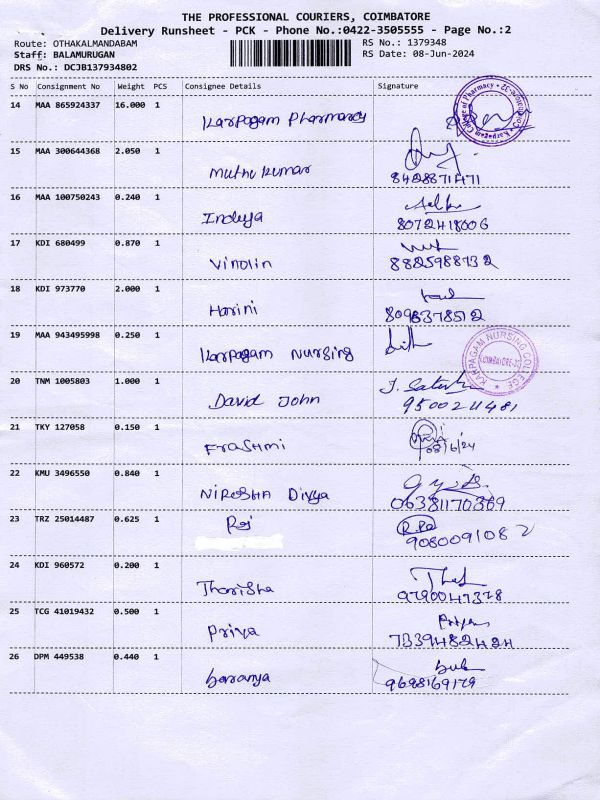 THE PROFESSIONAL COURIERS, COIMBATORE
Delivery Runsheet - PCK - Phone No.:0422-3505555 - Page No.:2
Route: OTHAKALMANDABAM
RS No.: 1379348
Staff: BALAMURUGAN
RS Date: 08-Jun-2024
DRS No.: DCJB137934802
S No Consignment No Weight PCS Consignee Details Signature
14 MAA 865924337 16.000 1 Karpagam Pharmacy
15 MAA 300644368 2.050 1
Muthu Kumar 8428871471
16 MAA 100750243 0.240 1
Induja 8072418006
17 KDI 680499 0.870 1
Vinolin 8825988732
18 KDI 973770 2.000 1
Harini 8098378512
19 MAA 943495998 0.250 1
Karpagam Nursing
KARPAGAM NURSING COLLEGE
COIMBATORE-32
20 TNM 1005803 1.000 1
David John 9500211481
21 TKY 127058 0.150 1
Prashmi 08/6/24
22 KMU 3496550 0.840 1
Niresha Divya 06381170369
23 TRZ 25014487 0.625 1 Raj
9080091082
24 KDI 960572 0.200 1
Tharisha 9790047378
25 TCG 41019432 0.500 1
Priya 7339482424
26 DPM 449538 0.440 1
Saranya 9698169179